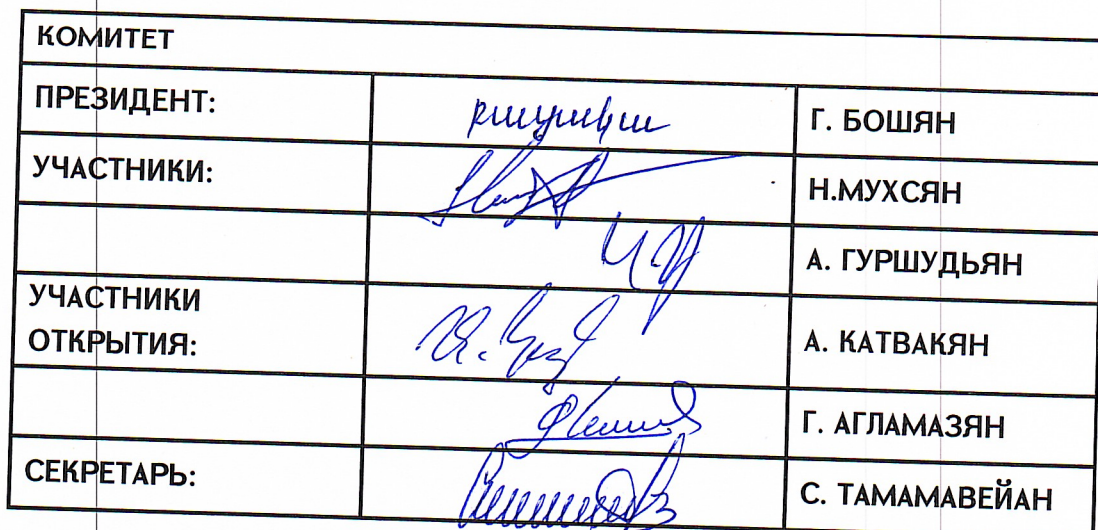 КОМИТЕТ
ПРЕЗИДЕНТ: Г. БОШЯН
УЧАСТНИКИ: Н.МУХСЯН
А. ГУРШУДЬЯН
УЧАСТНИКИ
ОТКРЫТИЯ: А. КАТВАКЯН
Г. АГЛАМАЗЯН
СЕКРЕТАРЬ: С. ТАМАМАВЕЙАН